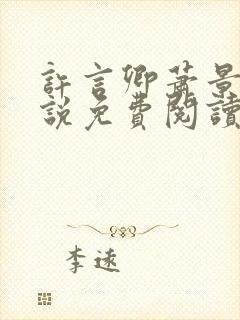 許言卿蕭景
說免費閱讀
李逺